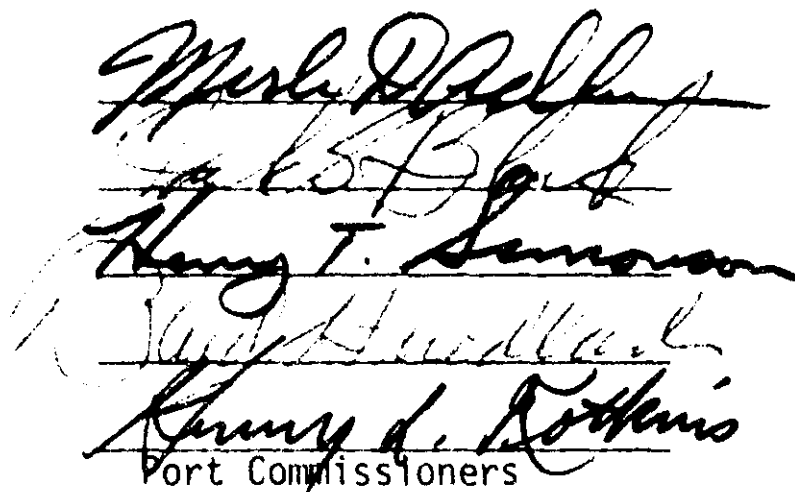 Merle D Adlum
Jack S Block
Henry T. Simonson
Henry L. Kotkins
Port Commissioners